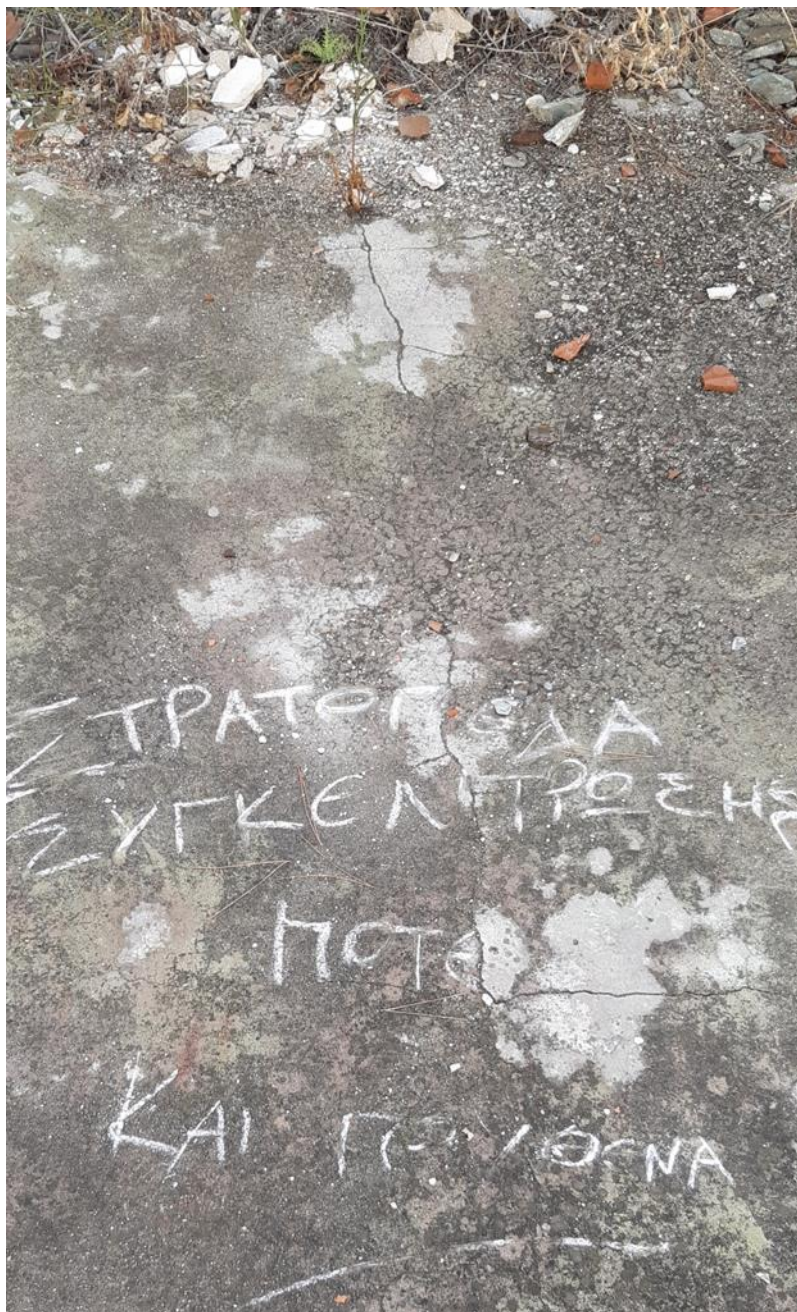 ΣΤΡΑΤΟΠΕΔΑ
ΣΥΓΚΕΝΤΡΩΣΗΣ
ΠΟΤΕ
ΚΑΙ ΠΟΥΘΕΝΑ